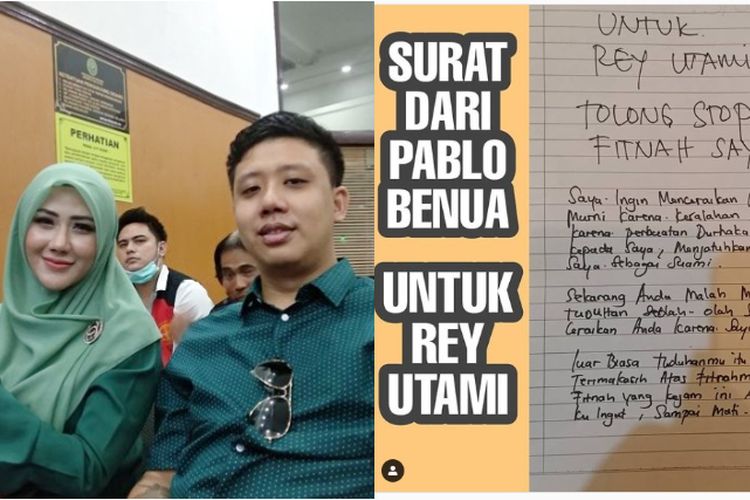 PERHATIAN
SURAT
DARI
PABLO
BENUA
UNTUK
REY
UTAMI
UNTUK
REY UTAMI
TOLONG STOP
FITNAH SAY
Saya Ingin Mancaraikan
Murni Karena Kesalahan
Karena perbuatan Durhaka
Kepada Saya, Menjatuhkan
Saya Sebagai Suami.
Sekarang Anda Malah M
seolah - olah S
Ceraikan Anda Karena Say
Luar Biasa Tuduhanmu itu
Terimakasih Atas Fitnahm
Fitnah yang Kejam ini A
Ku Ingat, Sampai Mati.